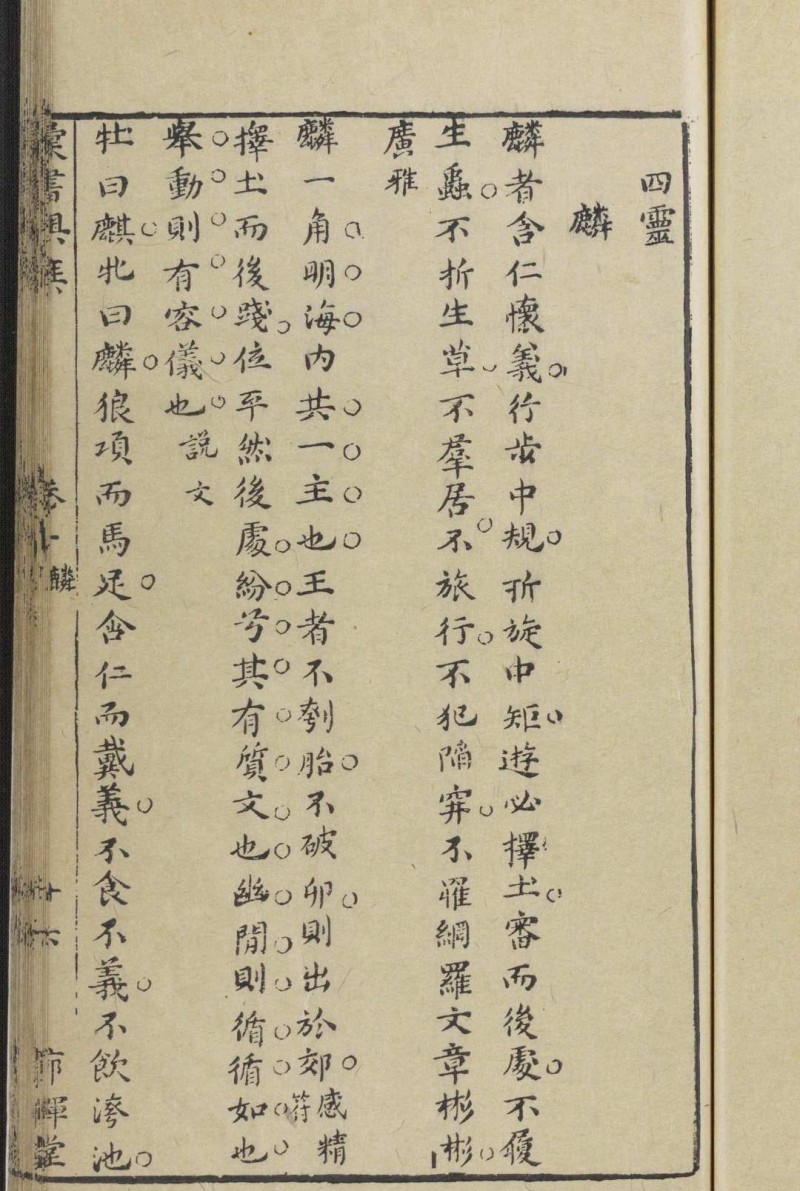 四靈
麟
麟者含仁懷義行步中規折旋中矩遊必擇土審而後處不履
生蟲不折生草不羣居不旅行不犯陷穽不罹網羅文章彬彬
廣雅
麟一角明海內共一主也王者不刳胎不破卵則出於郊感精符
擇土而後踐位平然後處紛兮其有質文也幽閒則循循如也
舉動則有容儀也說文
牡曰麒牝曰麟狼項而馬足含仁而戴義不食不義不飲洿池
彙書
卷十
麟
十六